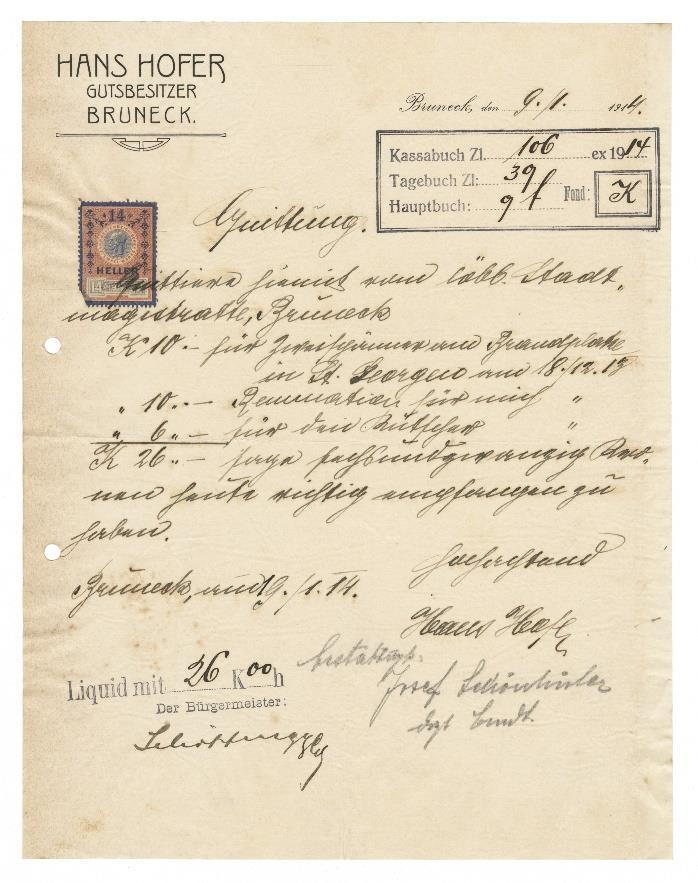 HANS HOFER
GUTSBESITZER
BRUNECK.
Bruneck, den 9./1. 1914.
Kassabuch Zl. 106 ex 1914
Tagebuch Zl: 39
Hauptbuch: 9 f Fond: K
14
HELLER
Quittung.
Quittiere hiemit vom löbl. Stadt-
magistratte, Bruneck
K 10.- für Zweispänner am Brandplatze
in St. Georgen am 18./12. 13
" 10.- für mich "
" 6.- für den Kutscher "
K 26.- sage sechsundzwanzig Kro-
nen heute richtig empfangen zu
haben.
Hochachtend
Bruneck, am 9./1. 14.
Hans Hofer
Liquid mit 26 K 00 h
Der Bürgermeister:
bestätigt.
Josef